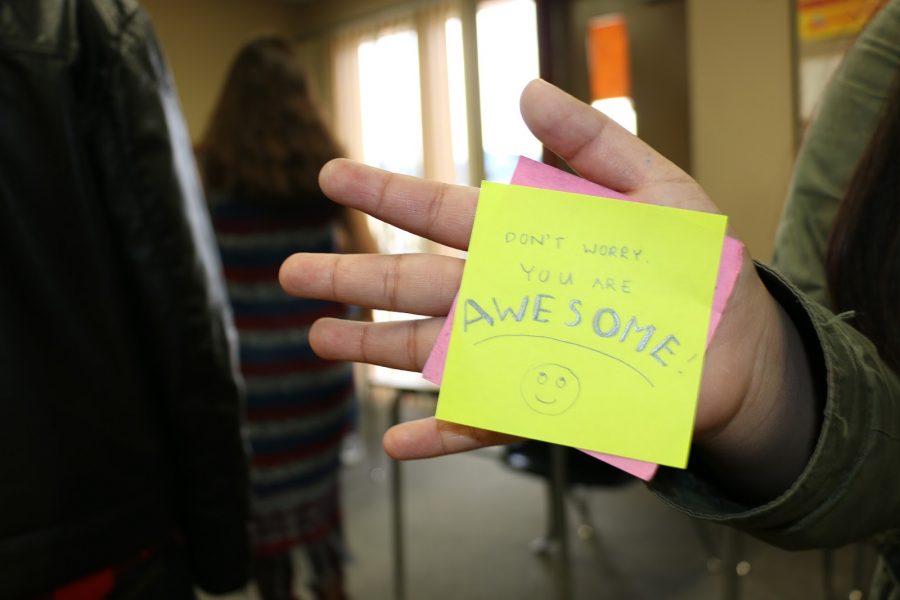 DON'T WORRY.
YOU ARE
AWESOME!